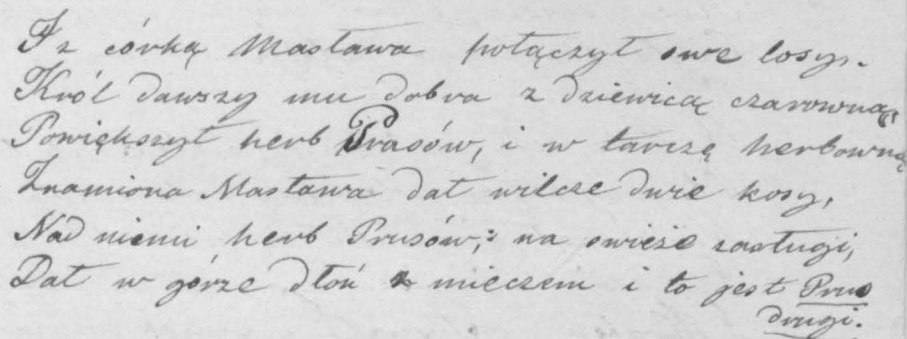 I z córką Masława połączył swe losy.
Król dawszy mu dobra z dziewicą czarowną,
Powiększył herb Prasów, i w tarczę herbowną
Znamiona Masława dał wilcze dwie kosy,
Nad niemi herb Prusów, na swieże zasługi,
Dał w górze dłoń z mieczem i to jest Prus
drugi.